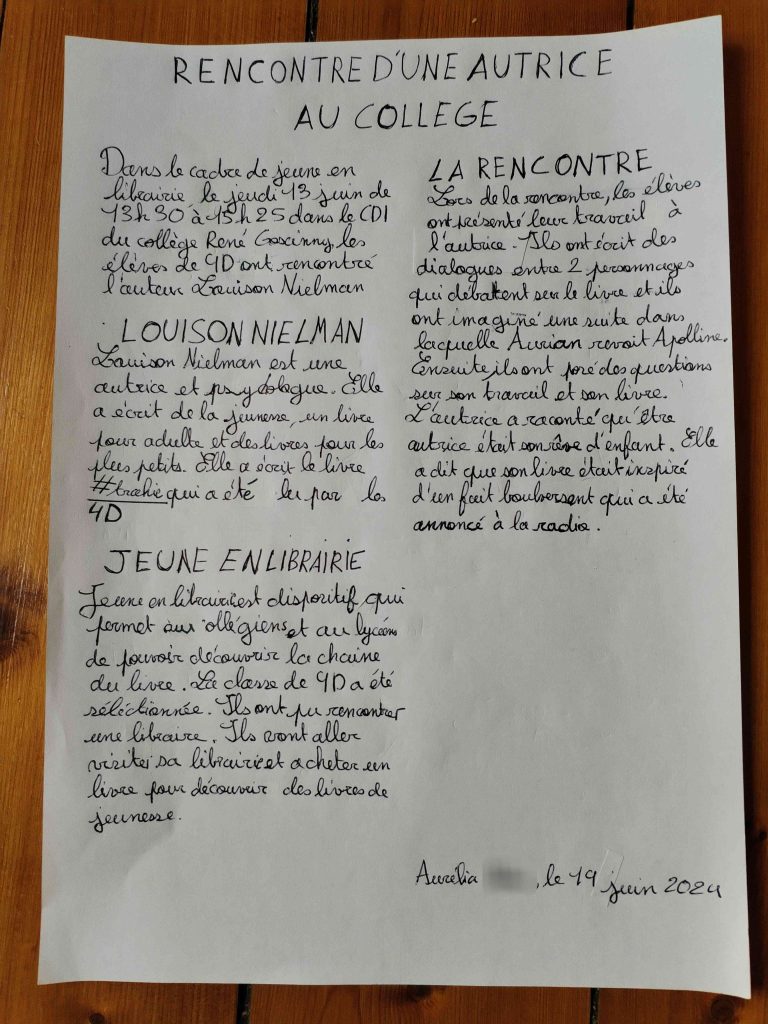 RENCONTRE D'UNE AUTRICE
AU COLLEGE
Dans le cadre de jeune en
librairie, le jeudi 13 juin de
13h30 à 15h25 dans le CDI
du collège René Goscinny, les
élèves de 4D ont rencontré
l'auteur Louison Nielman
LOUISON NIELMAN
Louison Nielman est une
autrice et psychologue. Elle
a écrit de la jeunesse, un livre
pour adulte et des livres pour les
plus petits. Elle a écrit le livre
#trahie qui a été lu par les
4D
JEUNE EN LIBRAIRIE
Jeune en librairie est dispositif qui
permet aux ollégiens et au lycéens
de pouvoir découvrir la chaine
du livre. La classe de 4D a été
séléctionnée. Ils ont pu rencontrer
une libraire. Ils vont aller
visiter sa librairie et acheter un
livre pour découvrir des livres de
jeunesse.
LA RENCONTRE
Lors de la rencontre, les élèves
ont présenté leur travail à
l'autrice. Ils ont écrit des
dialogues entre 2 personnages
qui débatent sur le livre et ils
ont imaginé une suite dans
laquelle Aurian revoit Apolline.
Ensuite ils ont posé des questions
sur son travail et son livre.
L'autrice a raconté qu'être
autrice était son rêve d'enfant. Elle
a dit que son livre était inspiré
d'un fait boulversent qui a été
annoncé à la radio.
Aurélia , le 19 juin 2024